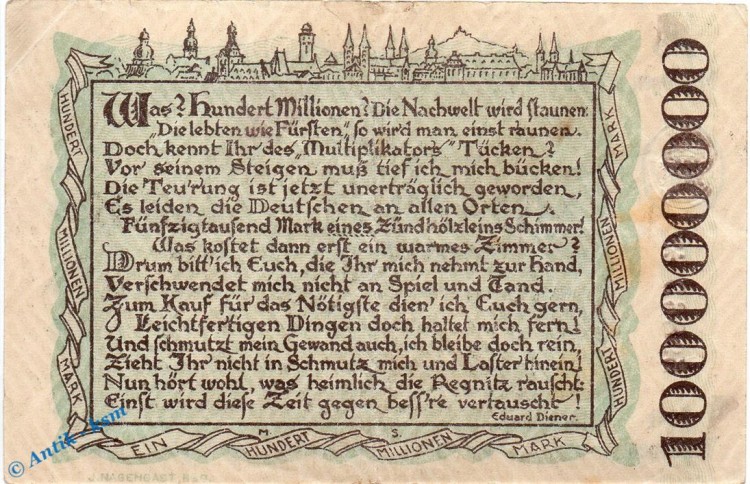 Was? Hundert Millionen? Die Nachwelt wird staunen:
„Die lebten wie Fürsten" so wird man einst raunen.
Doch kennt Ihr des „Multiplikators" Tücken?
Vor seinem Steigen muß tief ich mich bücken!
Die Teu'rung ist jetzt unerträglich geworden,
Es leiden die Deutschen an allen Orten.
Fünfzigtausend Mark eines Zündhölzleins Schimmer!
Was kostet dann erst ein warmes Zimmer?
Drum bitt' ich Euch, die Ihr mich nehmt zur Hand,
Verschwendet mich nicht an Spiel und Tand.
Zum Kauf für das Nötigste dien' ich Euch gern,
Leichtfertigen Dingen doch haltet mich fern!
Und schmutzt mein Gewand auch, ich bleibe doch rein,
Zieht Ihr nicht in Schmutz mich und Laster hinein!
Nun hört wohl, was heimlich die Regnitz rauscht:
Einst wird diese Zeit gegen bess're vertauscht!
Eduard Diener.
HUNDERT
MILLIONEN
MARK
MARK
MILLIONEN
HUNDERT
M. S.
EIN HUNDERT MILLIONEN MARK
100000000
© Antik - ksm
J. NAGENGAST, BBG.